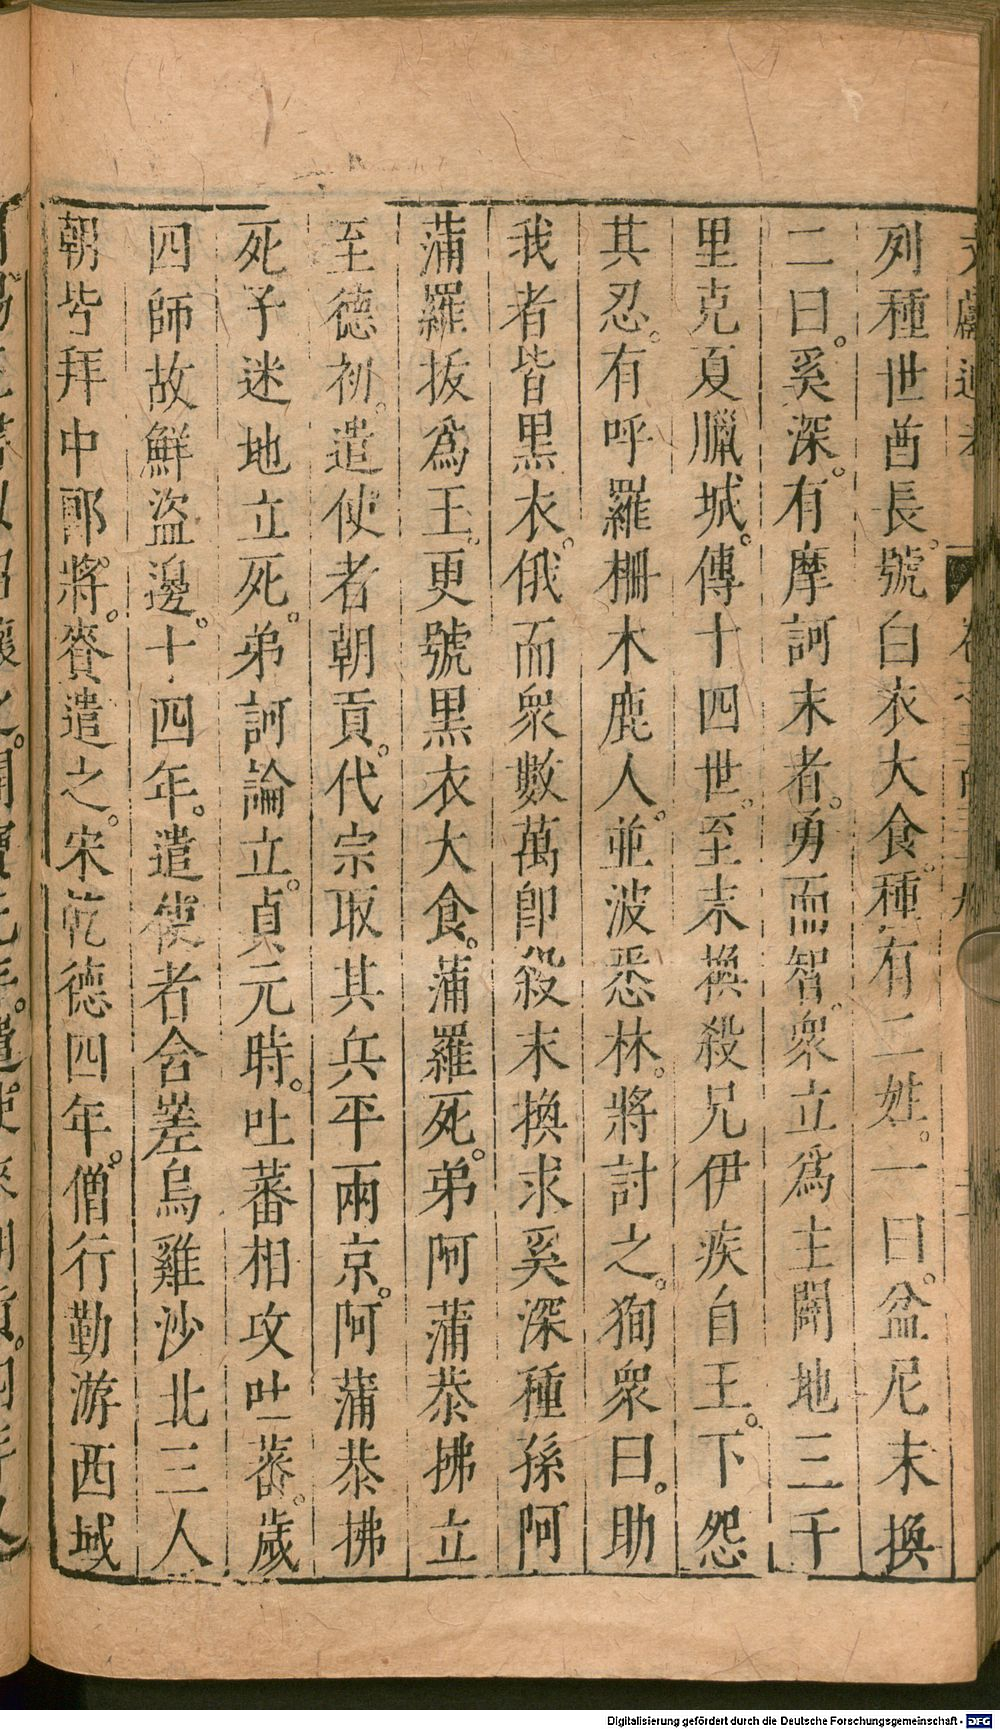 列種世酋長。號白衣大食。種有二姓。一曰。盆尼末換
二曰。奚深。有摩訶末者。勇而智。衆立爲主闢地三千
里克夏臘城。傳十四世。至末換殺兄伊疾自王。下怨
其忍。有呼羅柵木鹿人。並波悉林。將討之。狥衆曰。助
我者皆黒衣。俄而衆數萬卽殺末換求奚深種孫阿
蒲羅拔爲王。更號黒衣大食。蒲羅死。弟阿蒲恭拂立
至德初。遣使者朝貢。代宗取其兵平兩京。阿蒲恭拂
死子迷地立死。弟訶論立。貞元時。吐蕃相攻吐蕃。歲
四師故鮮盜邊。十四年。遣使者含嵳烏雞沙北三人
朝皆拜中郎將。賚遣之。宋乾德四年。僧行勤游西域
Digitalisierung gefördert durch die Deutsche Forschungsgemeinschaft - DFG